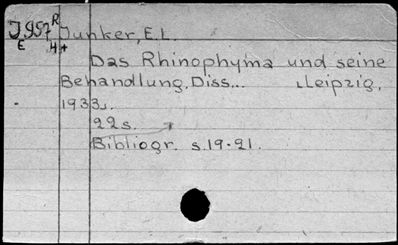 J997 R Junker, E.L.
E H+
Das Rhinophyma und seine
Behandlung. Diss... Leipzig,
1933.
22 s.
Bibliogr. s.19-21.